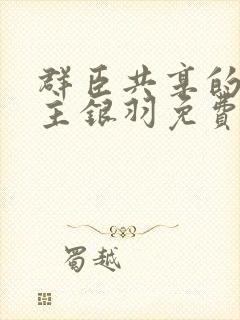 群臣共享的
主银羽免費
蜀越